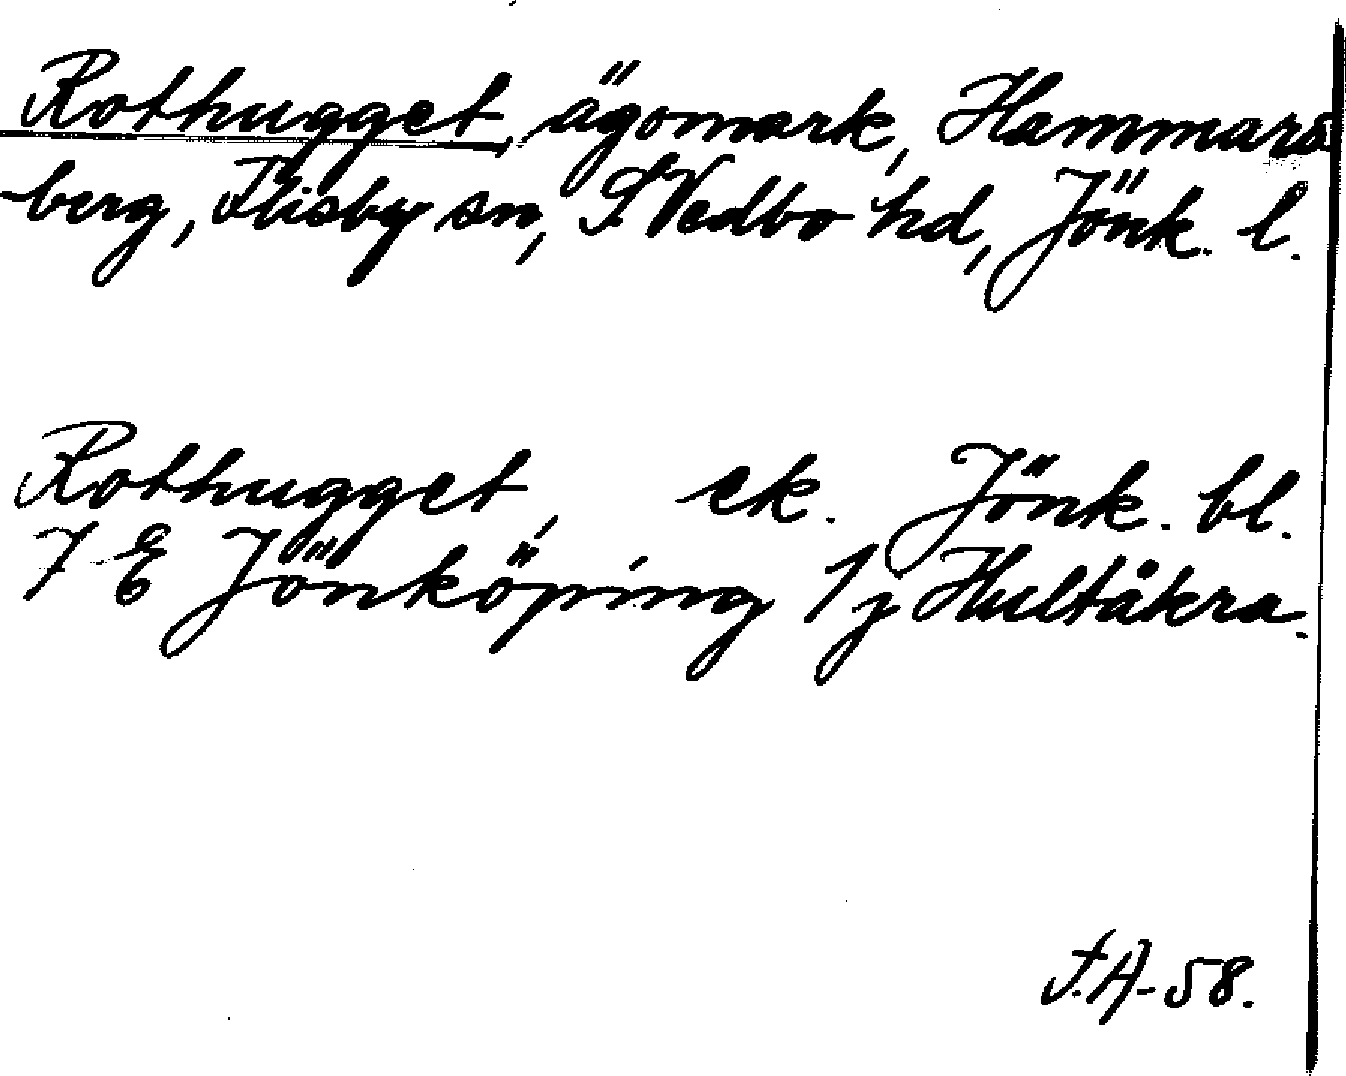 Rothugget, ägomark, Hammars
berg, Flisby sn, S Vedbo hd, Jönk. l.
Rothugget, ek. Jönk. bl.
7 E Jönköping 1 j Hultåkra.
F.A-58.